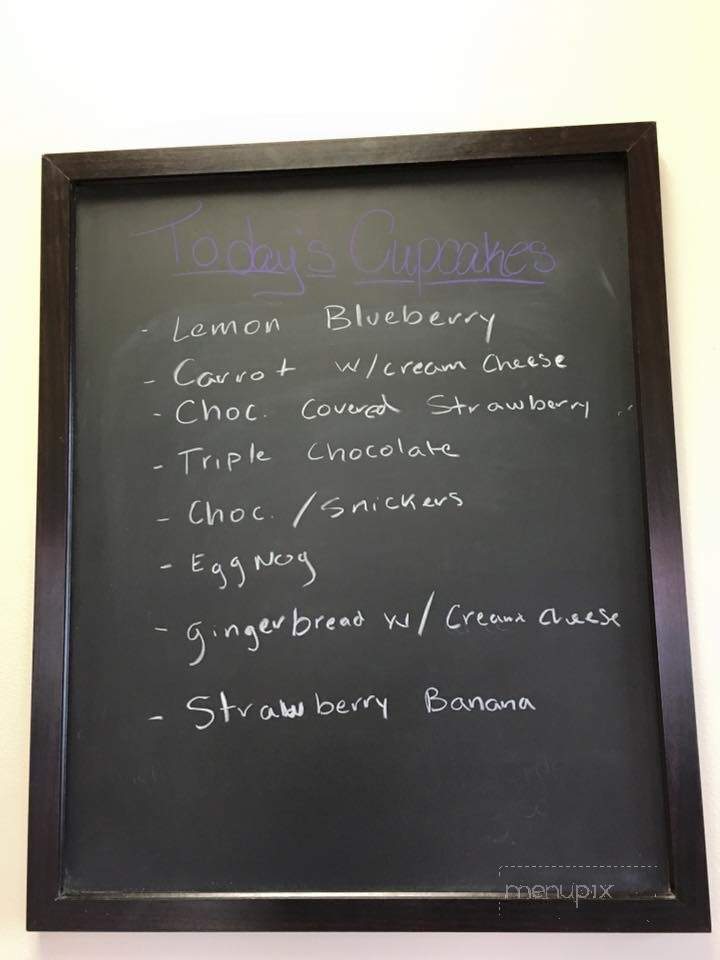 Today's Cupcakes
- Lemon Blueberry
- Carrot w/cream cheese
- Choc. Covered Strawberry
- Triple Chocolate
- Choc. /Snickers
- EggNog
- gingerbread w/ Cream cheese
- Strawberry Banana
menupix